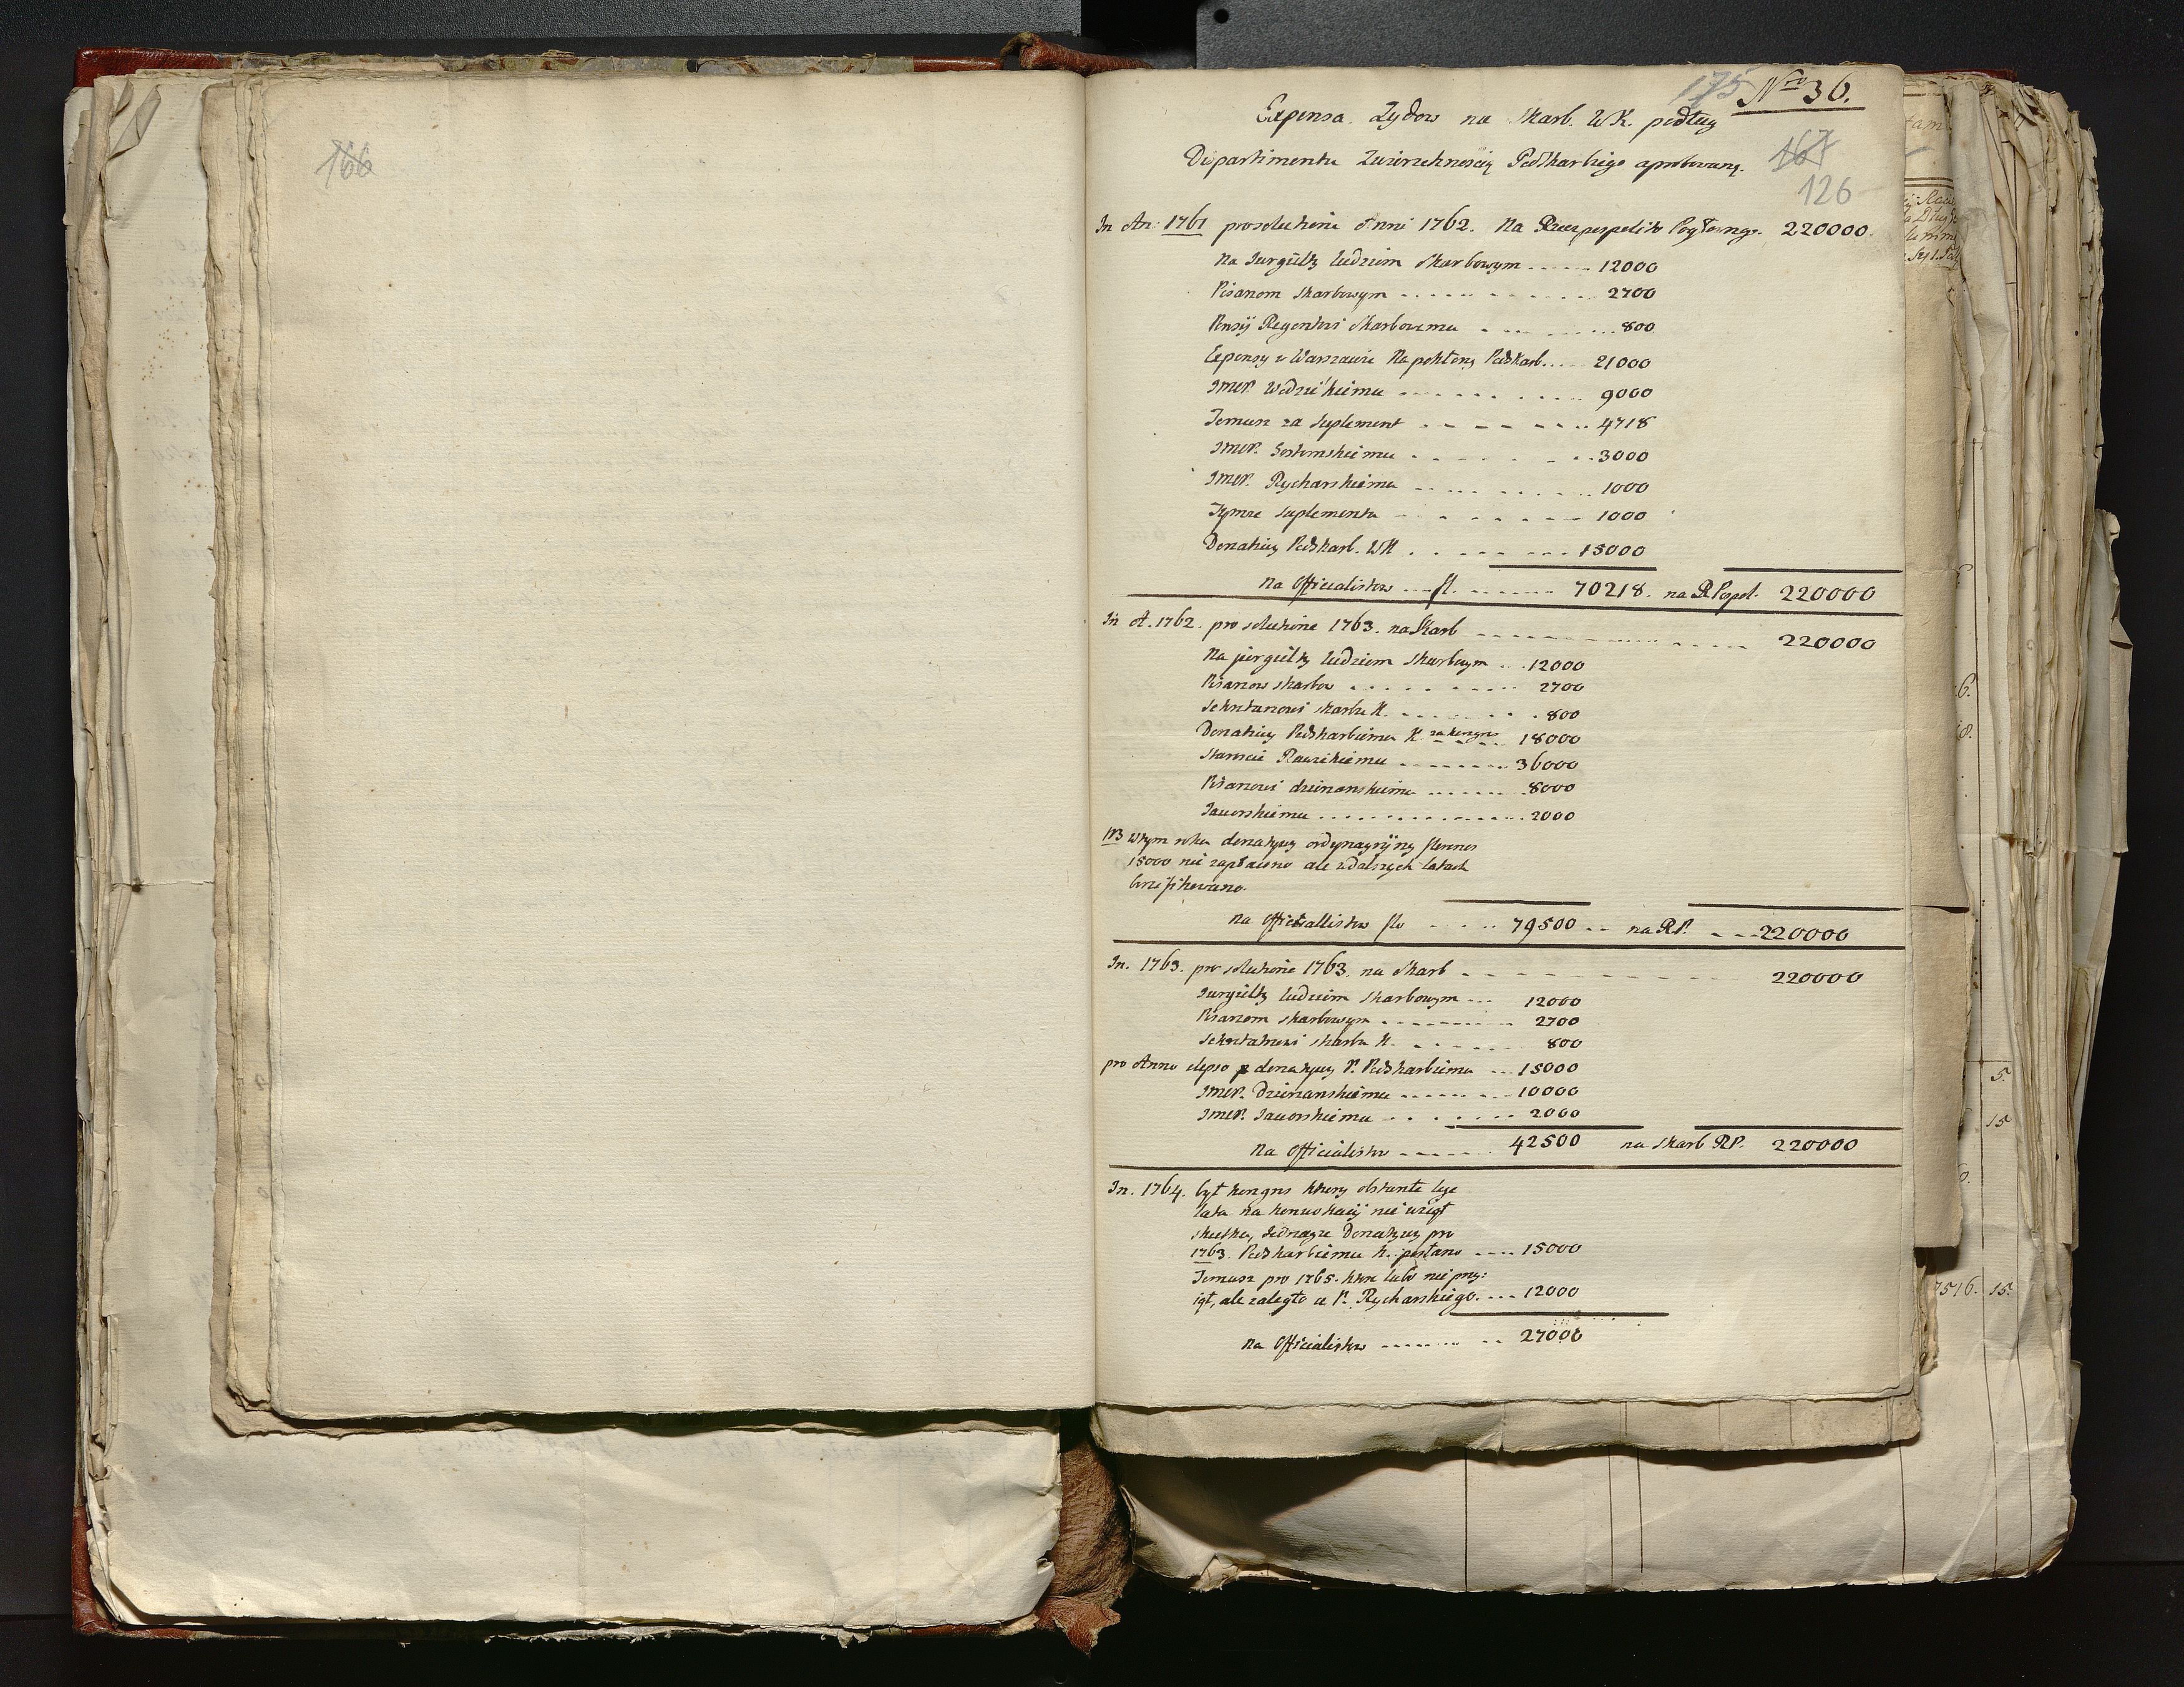 166
175 Nro 36.
Expensa Zydow na Skarb. W K. podług
Dipartimentu Zwierzchnoscią Podskarbiego aprobowaną.
167
126
In An: 1761 pro solutione Anni 1762. Na Rzeczpospolitą Pogłowngo. 220000.
Na Jurgielty ludziom Skarbowym ..... 12000
Pisarzom Skarbowym ..... 2700
Pensij Regentowi Skarbowemu ..... 800
Expensy w Warszawie Podskarb.... 21000
JMCP. Wodzickiemu ..... 9000
Temusz za Suplement ..... 4718
JMCP. Gostomskiemu ..... 3000
JMCP. Rycharskiemu ..... 1000
Tymze Suplementu ..... 1000
Donatiwy Podskarb. WK ..... 15000
Na Officialistow ... fl. ..... 70218. na R Pospol. 220000
In A. 1762. pro solutione 1763. na Skarb ..... 220000
Na jurgielty ludziom Skarbwym ... 12000
Pisarzow skarbow ..... 2700
Sekretarzowi skarbu K. ..... 800
Donatiwy Podskarbiemu K. za kongres 18000
Staroscie Rawskiemu ..... 36000
Pisarzowi dzierzanskiemu ..... 8000
Jaworskiemu ..... 2000
NB W tym roku donatywy ordynaryiny florenos
15000 nie zapłacono ale w dalszych latach

Na Officiallistow flo ..... 79500 .. na RP. ... 220000
In. 1763. pro solutione 1763. na Skarb ..... 220000
Jurgielty ludziom skarbowym ... 12000
Pisarzom skarbowym ..... 2700
Sekretarzowi skarbu K. ..... 800
pro Anno elapso donatywy P. Podskarbiemu ... 15000
JMCP. Dzierzanskiemu ..... 10000
JMCP. Jaworskiemu ..... 2000
Na Officialistow ..... 42500 na skarb RP. 220000
In. 1764. był kongres ktory obstante lege
lata na konwokacij nie wziął
skutku, Jednakze Donatywy pro
1763. Podskarbiemu K. posłano .... 15000
Temusz pro 1765. ktore lubo nie przy:
iął, ale zaległo u P. Rycharskiego. ... 12000
Na Officialistow ..... 27000
6.
8.
5.
15
7516. 15.